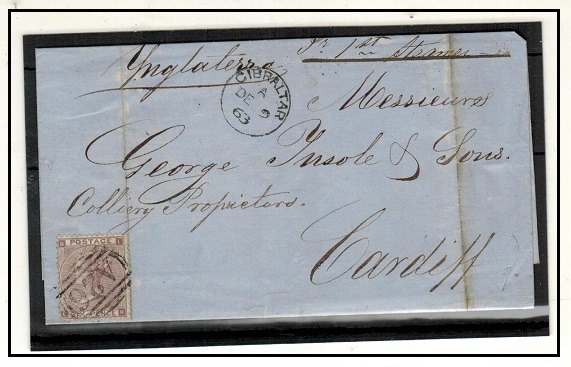 Inglaterra, Pr 1st Steamer
GIBRALTAR
A
DE 9
63
Messieurs
George Insole & Sons.
Colliery Proprietors.
Cardiff
POSTAGE
A26
SIX PENCE